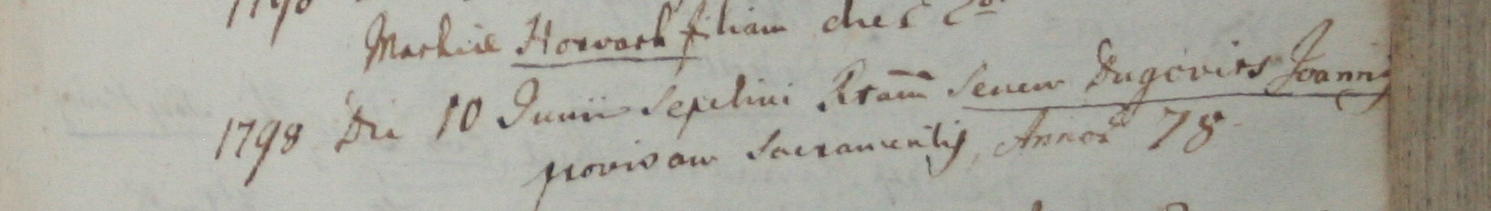 1798
Mathiæ Horvath filiam die 5 2br
1798 Die 10 Junii Sepelivi Rtam̄ Senem Dugovics Joannis
provisam Sacramentis, Annor 78